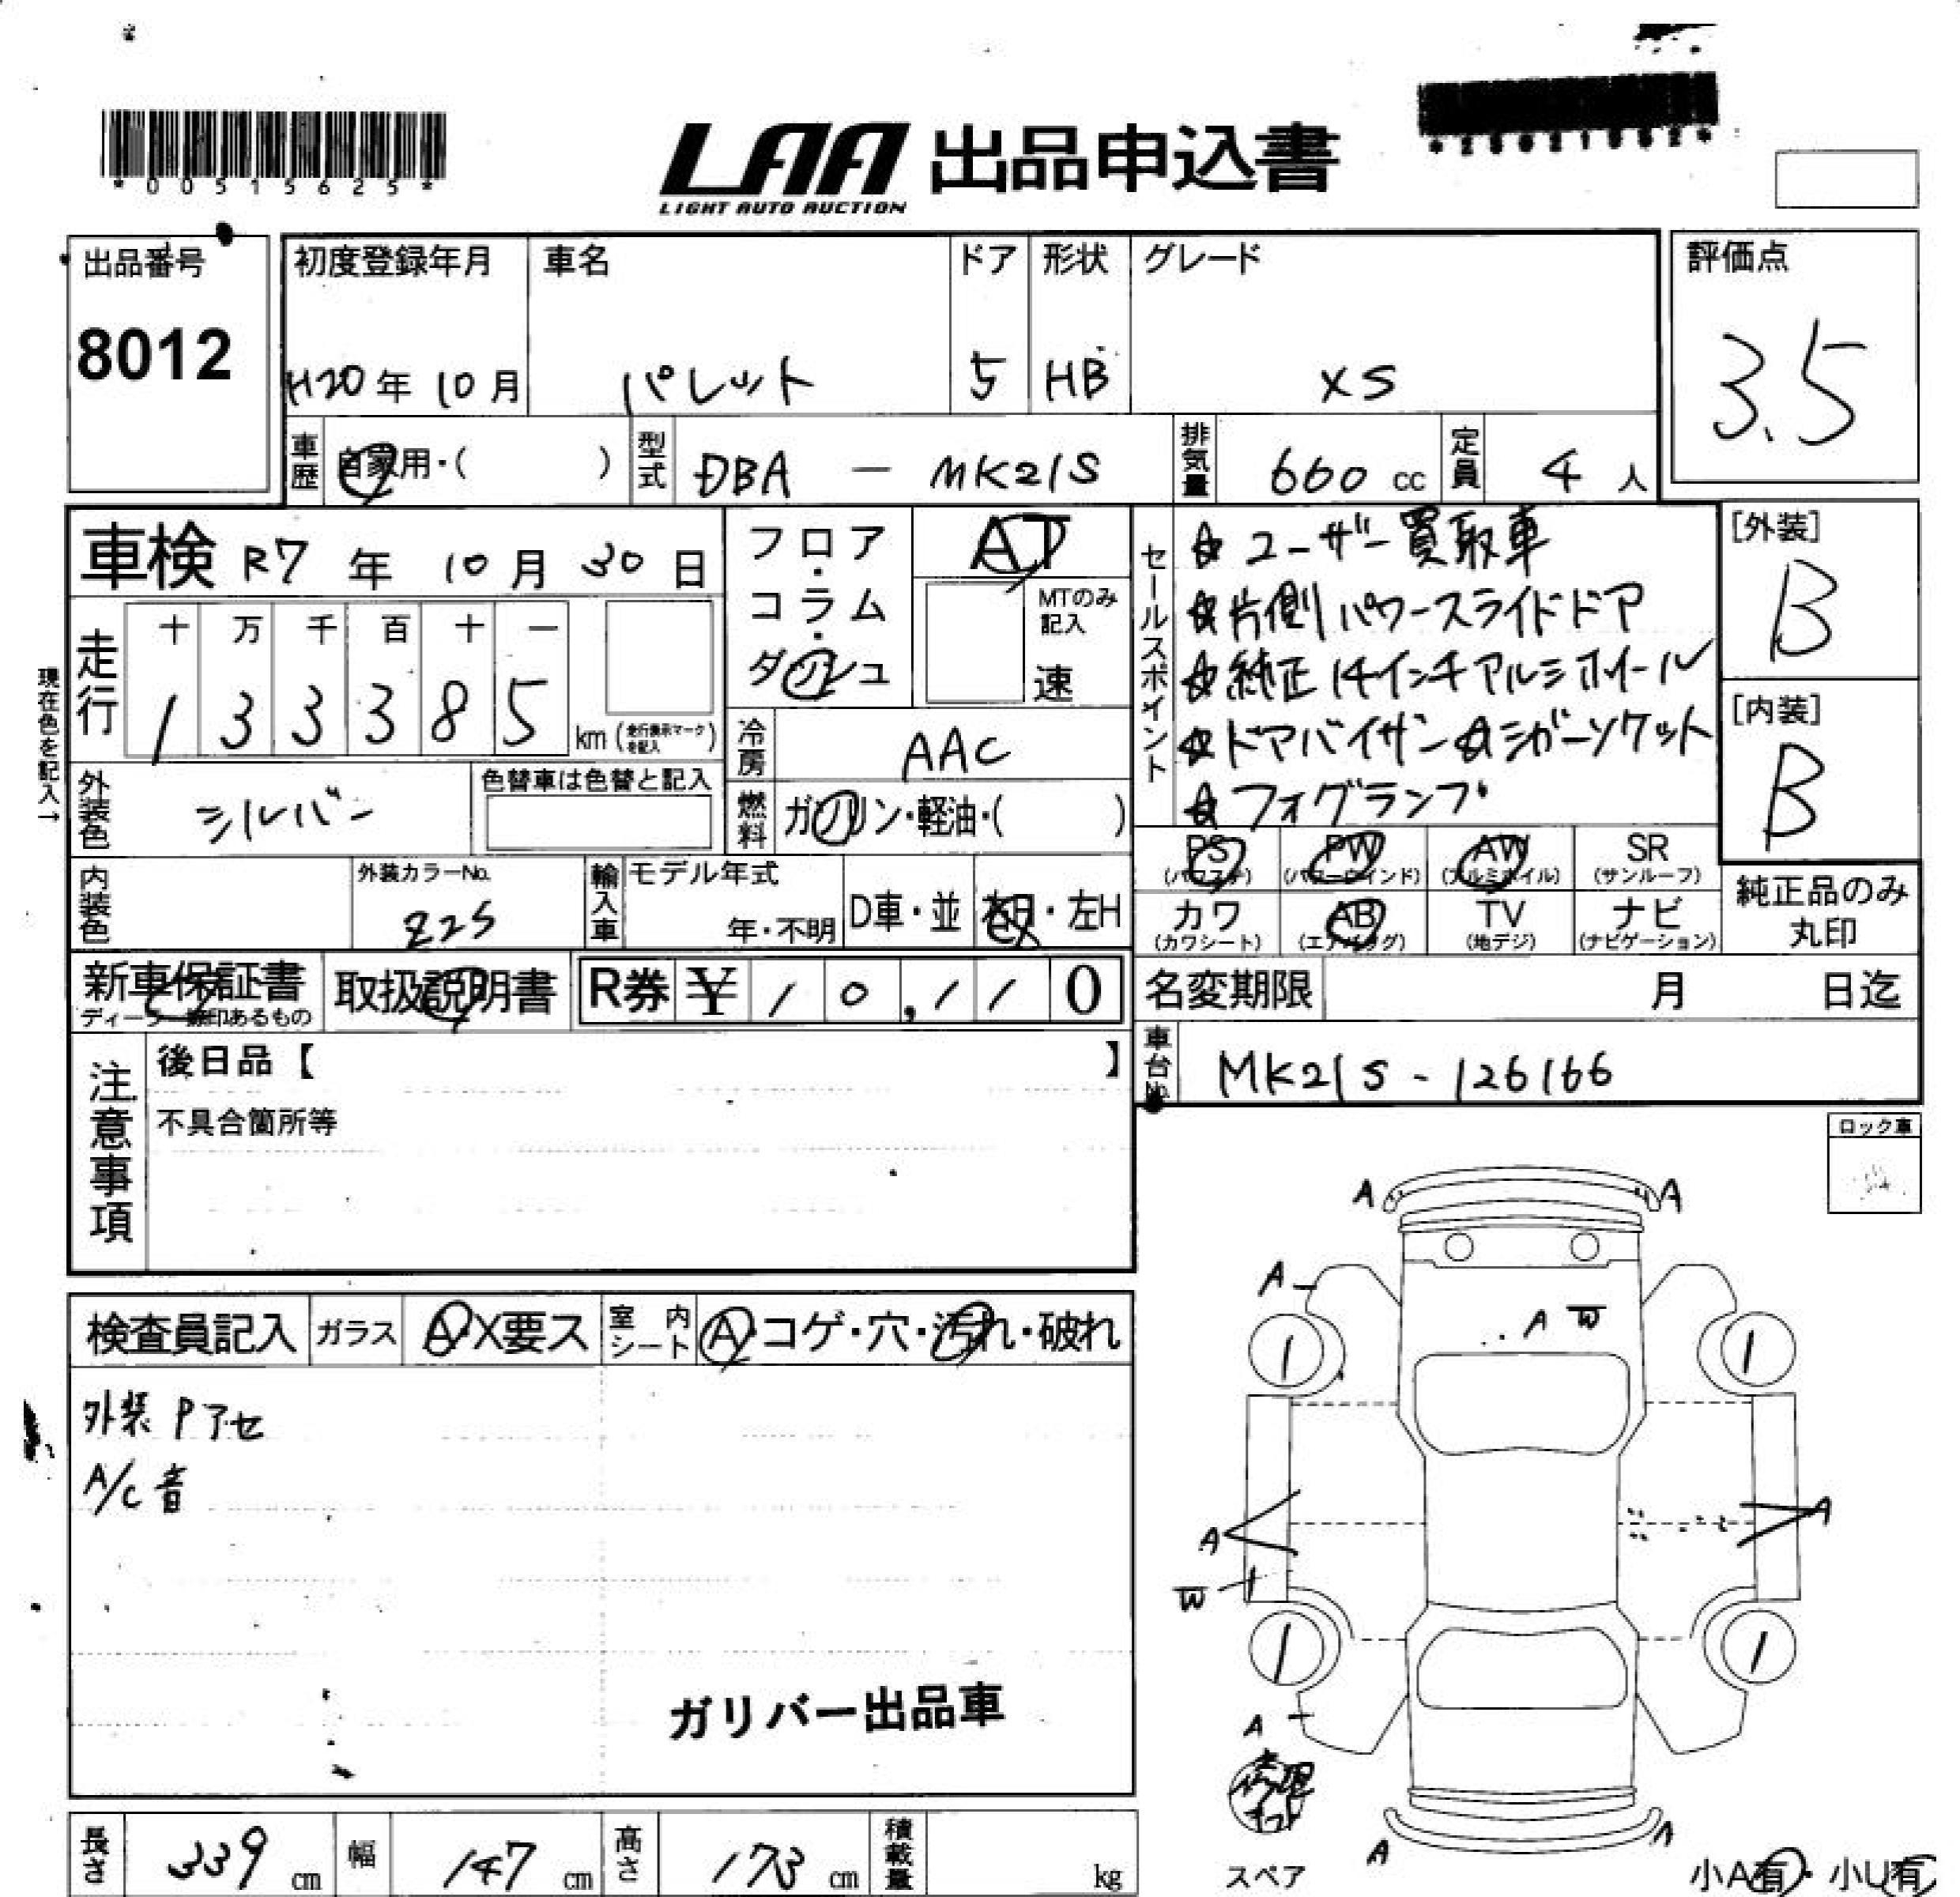 *00515625*
LAA 出品申込書
LIGHT AUTO AUCTION
出品番号
8012
初度登録年月
H20年 10月
車名
パレット
ドア
5
形状
HB
グレード
XS
評価点
3.5
車歴
自家用・( )
型式
DBA － MK21S
排気量
660 cc
定員
4 人
車検 R7 年 10 月 30 日
フロア・コラム・ダッシュ
AT
MTのみ記入
速
セールスポイント
☆ユーザー買取車
☆片側パワースライドドア
☆純正14インチアルミホイール
☆ドアバイザー☆シガーソケット
☆フォグランプ
[外装]
B
[内装]
B
走行
十 万 千 百 十 一
1 3 3 3 8 5
km (走行表示マークを記入)
現在色を記入→
冷房
AAC
外装色
シルバー
色替車は色替と記入
燃料
ガソリン・軽油・( )
内装色
外装カラーNo.
Z2S
輸入車
モデル年式
年・不明
D車・並
右H・左H
PS
(パワステ)
PW
(パワーウインド)
AW
(アルミホイル)
SR
(サンルーフ)
カワ
(カワシート)
AB
(エアバッグ)
TV
(地デジ)
ナビ
(ナビゲーション)
純正品のみ
丸印
新車保証書
取扱説明書
R券 ¥ 1 0 , 1 1 0
名変期限
月 日迄
車台No.
MK21S - 126166
注意事項
後日品【 】
不具合箇所等
ロック車
検査員記入
ガラス
A・X要ス
室内シート
A・コゲ・穴・汚れ・破れ
外装 Pアセ
A/C音
ガリバー出品車
A
A
A
A W
1
1
A
A
W
1
1
A
A
A
長さ
339 cm
幅
147 cm
高さ
173 cm
積載量
kg
スペア
小A有・小U有